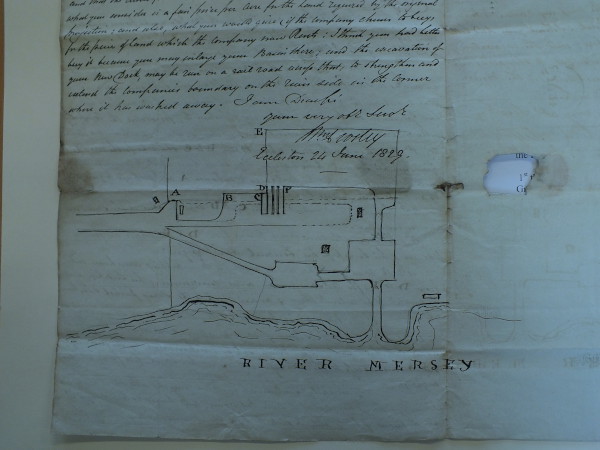 what you consider is a fair price per acre for the land required by the original
projection; and also, what you would give, if the company chuses to buy,
for the piece of land which the company now Rent: I think you had better
buy it because you may enlarge your Bason there; and the excavation of
your New Dock, may be run on a rail road across that, to strengthen and
extend the company's boundary on the river side, in the corner
where it has washed away. I am Dear Sir
your very obt. Servt.
Eccleston 24 June 1829.
E
A
B
C
D
F
RIVER MERSEY